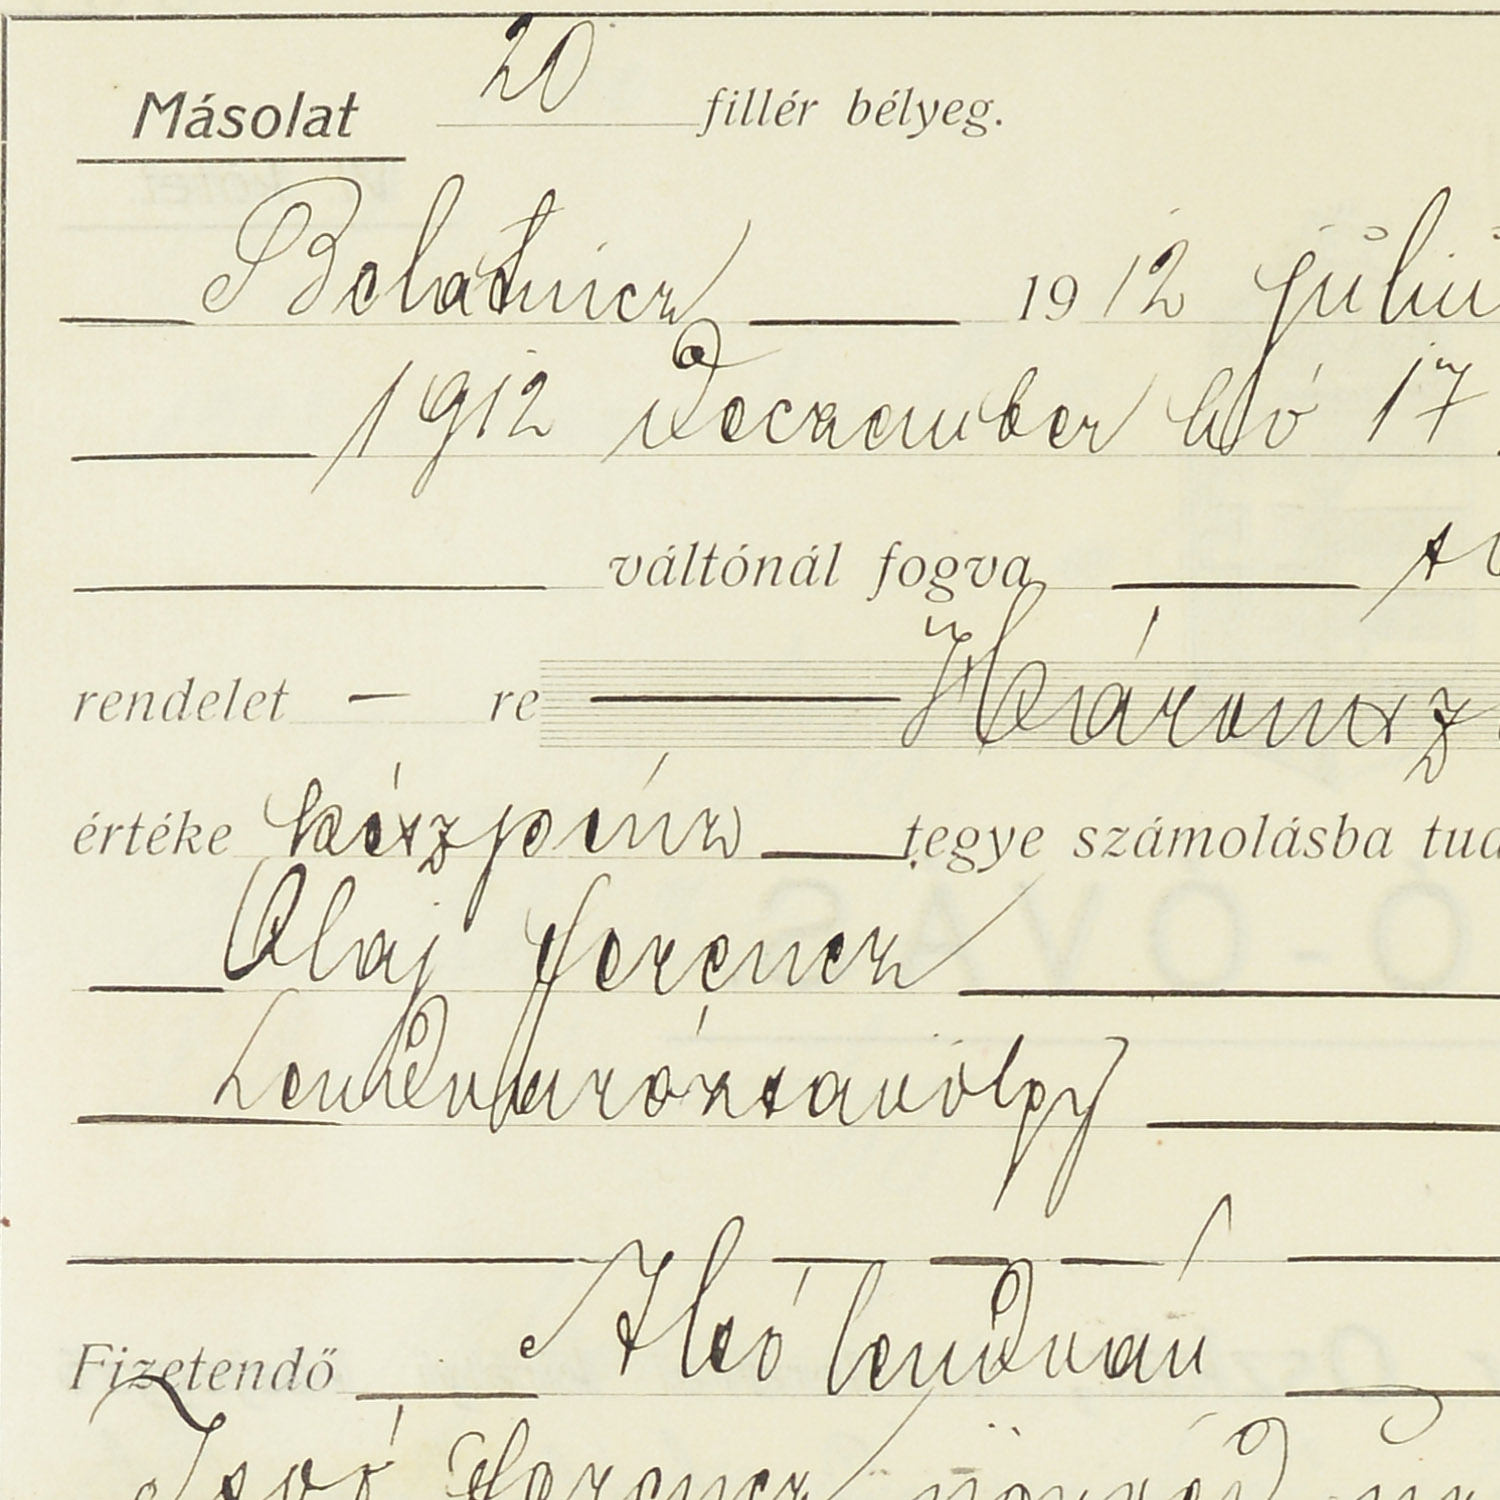 Másolat 20 fillér bélyeg.
Belatincz 1912 juliu
1912 Deczember hó 17
váltónál fogva
rendelet — re Háromsz
értéke készpénz tegye számolásba tud
Olaj Ferencz
Lendvarózsavölgy
Fizetendő Alsólendván
Ferencz